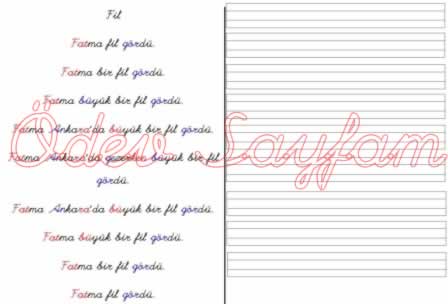 Fil
Fatma fil gördü.
Fatma bir fil gördü.
Fatma büyük bir fil gördü.
Fatma Ankara'da büyük bir fil gördü.
Fatma Ankara'da gezerken büyük bir fil
gördü.
Fatma Ankara'da büyük bir fil gördü.
Fatma büyük bir fil gördü.
Fatma bir fil gördü.
Fatma fil gördü.
Ödev Sayfam